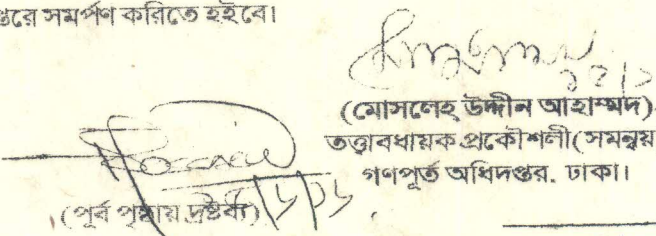 প্তরে সমর্পণ করিতে হইবে।
(মোসলেহ উদ্দীন আহাম্মদ)
তত্ত্বাবধায়ক প্রকৌশলী(সমন্বয়
গণপূর্ত অধিদপ্তর. ঢাকা।
(পূর্ব পৃষ্ঠায় দ্রষ্টব্য)